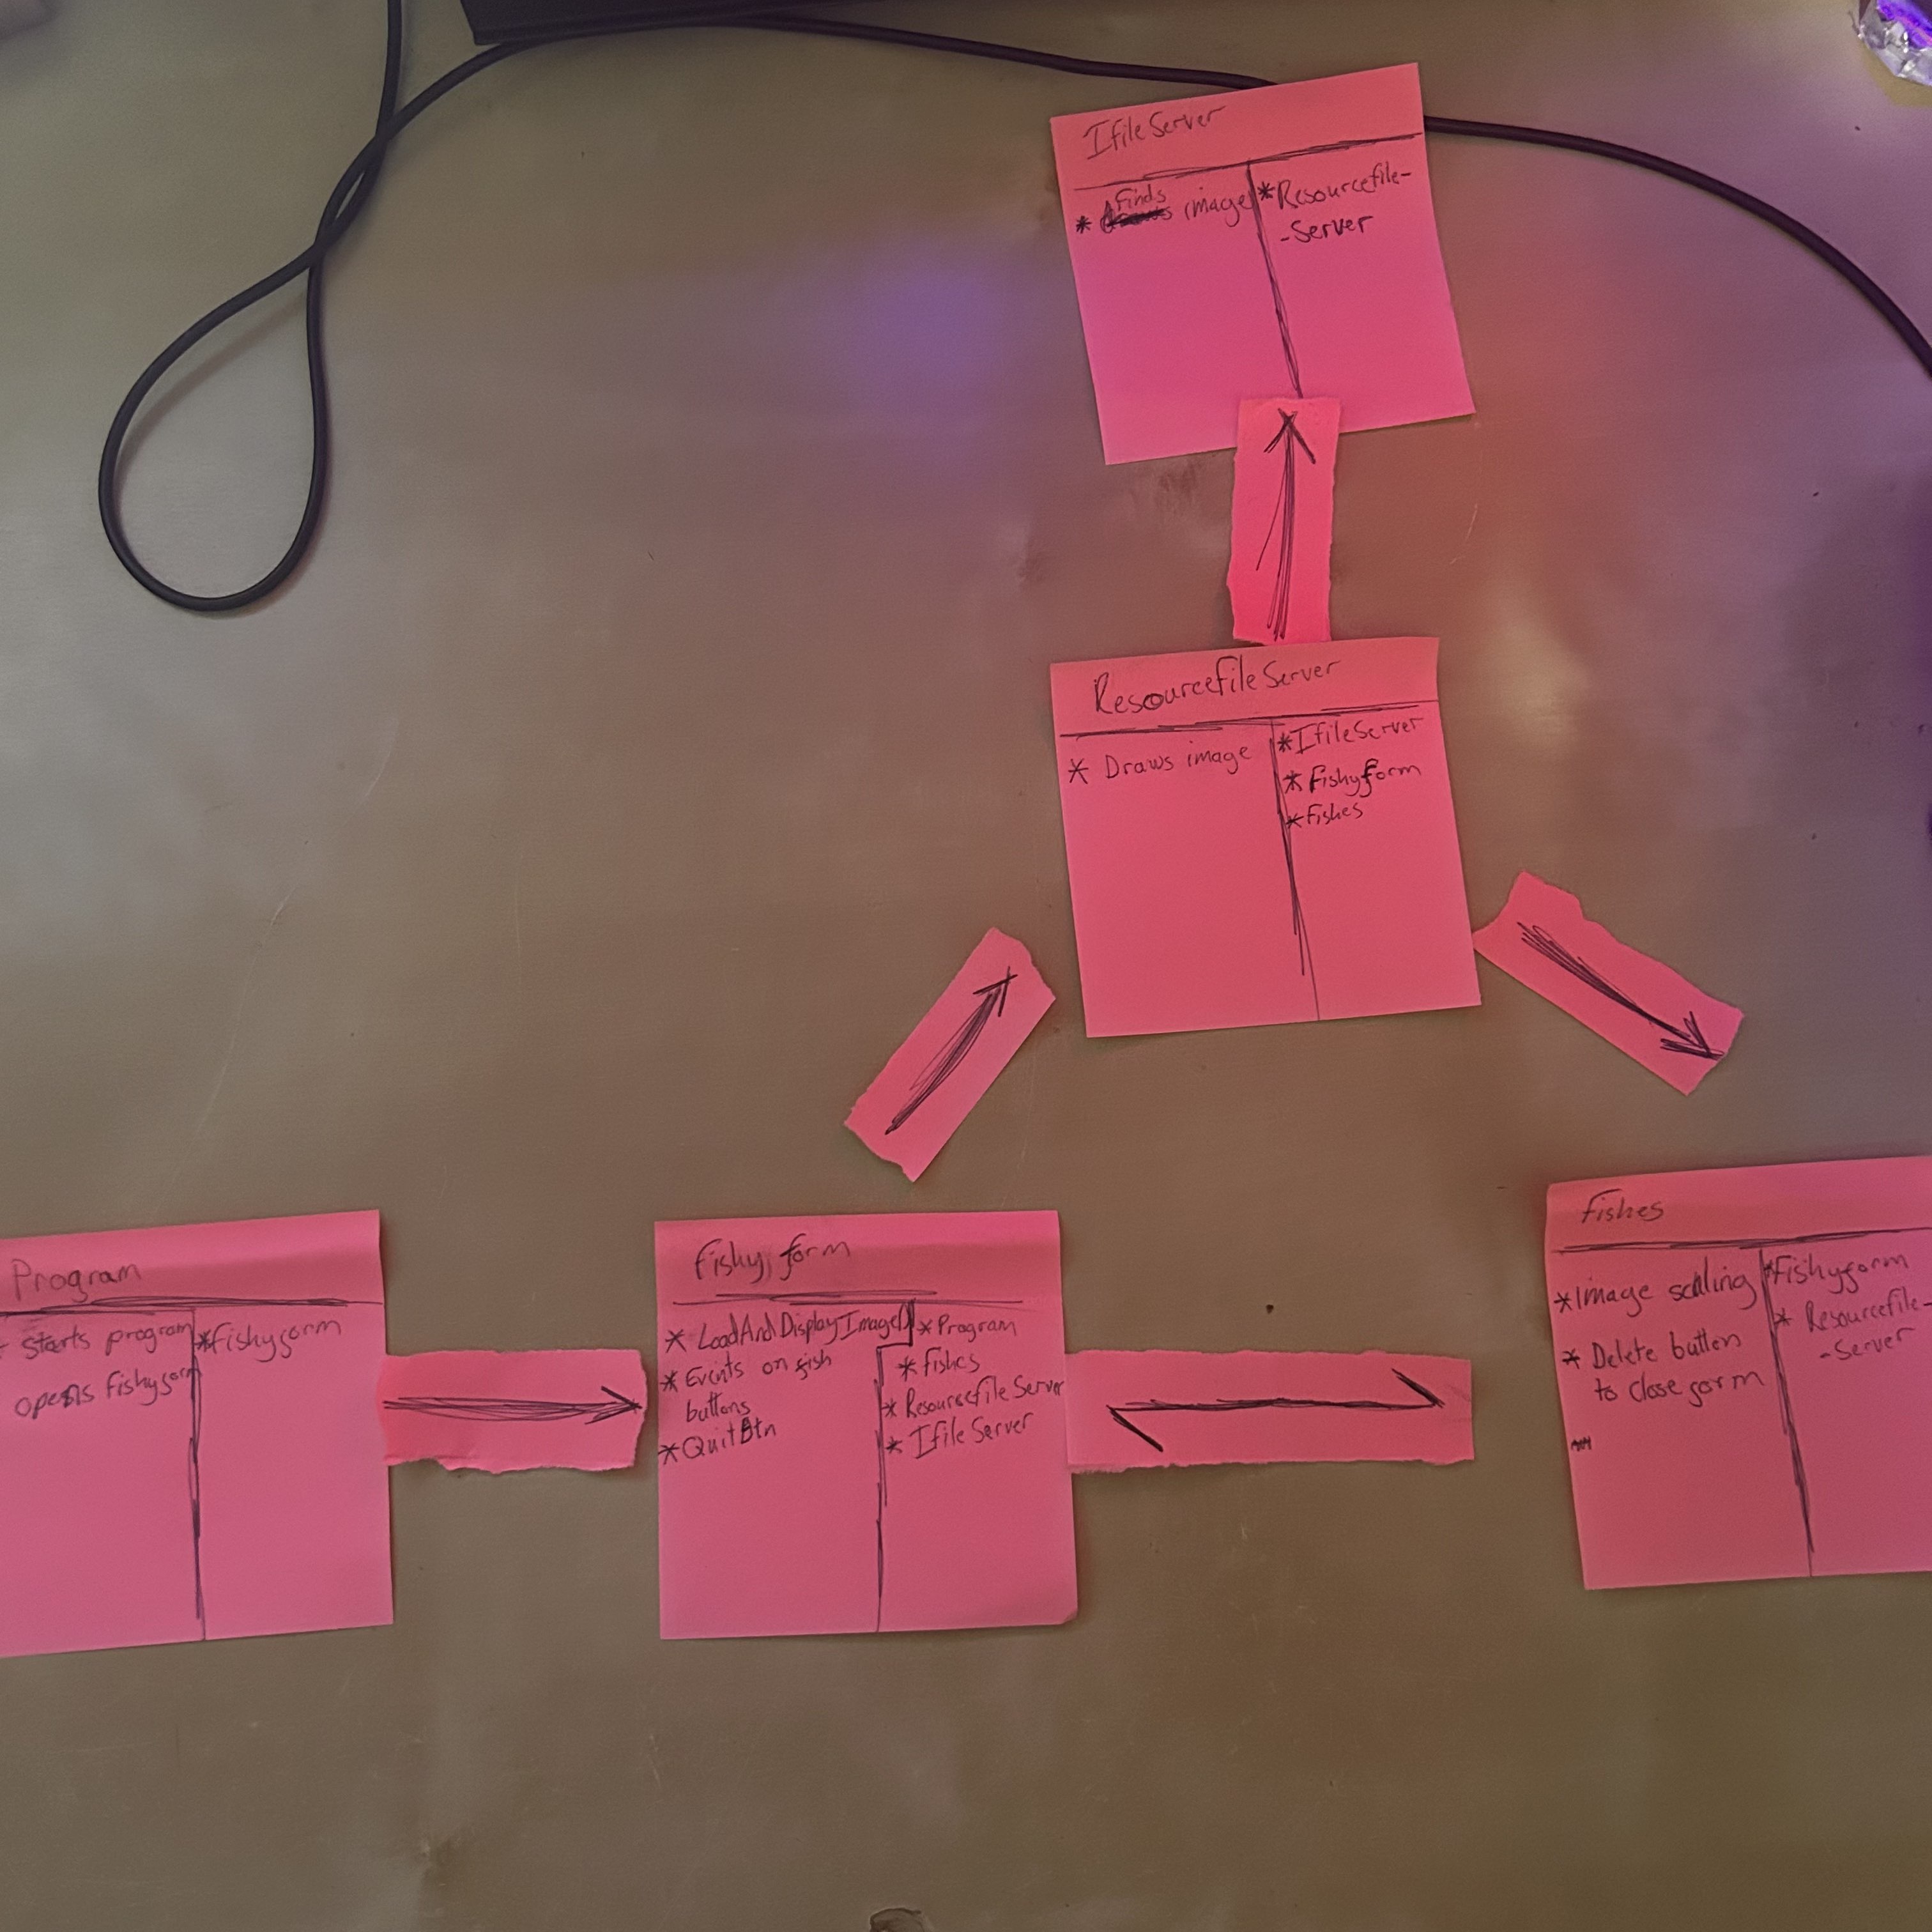 Ifile Server
* Finds image
* Resourcefile-
-Server
Resourcefile Server
* Draws image
* Ifile Server
* Fishyform
* Fishes
Program
* Starts program
opens fishyform
* fishyform
fishy form
* LoadAndDisplayImage()
* Events on fish
buttons
* QuitBtn
* Program
* fishes
* Resourcefile Server
* Ifile Server
fishes
* Image scaling
* Delete button
to close form
* Fishyform
* Resourcefile-
-Server